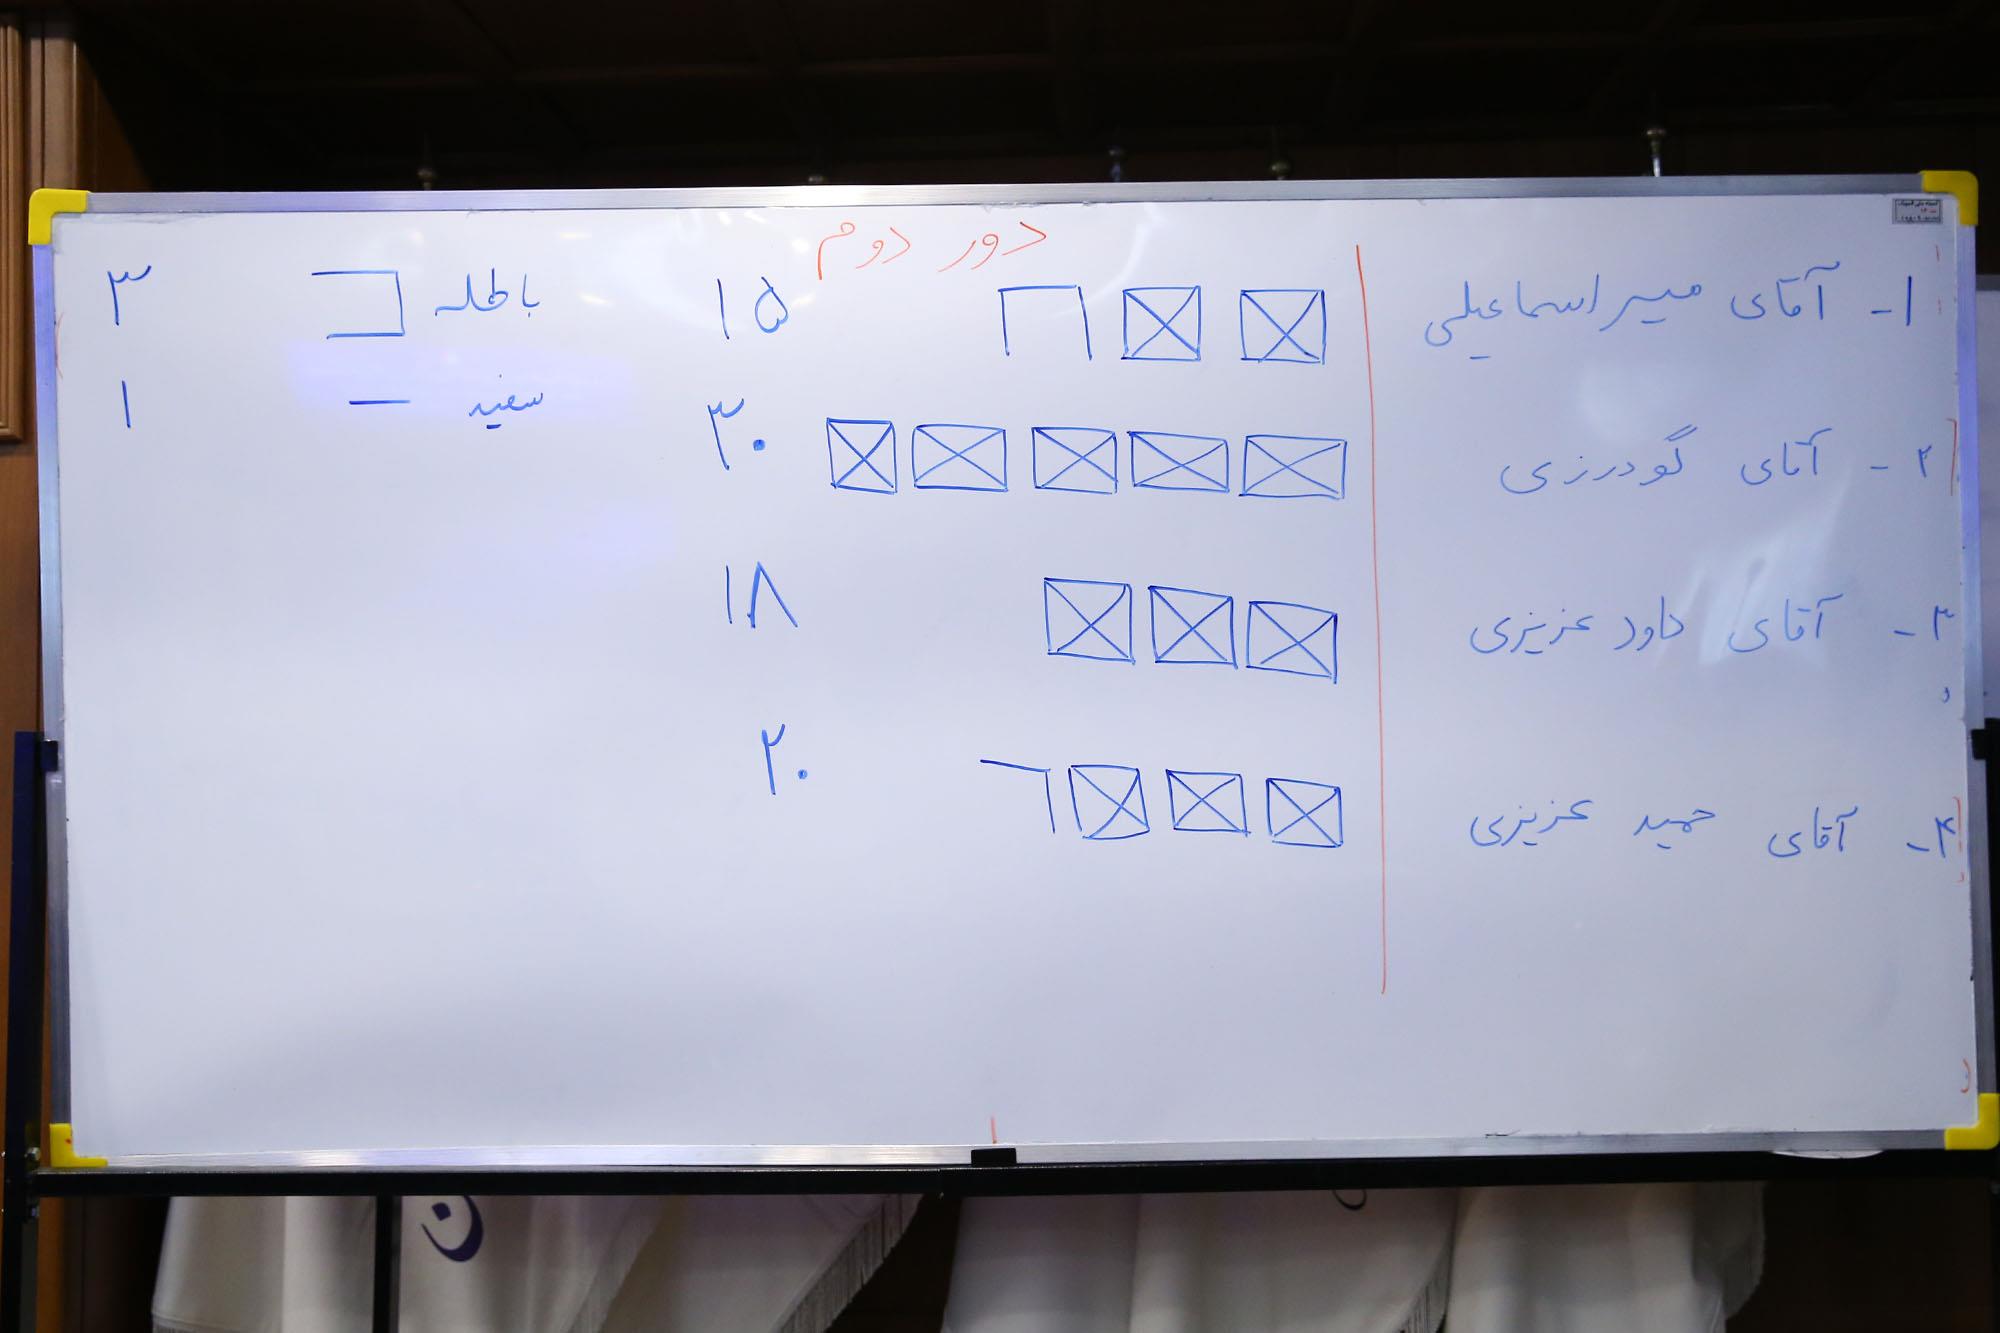 دور دوم
۱- آقای میراسماعیلی ۱۵
۲- آقای گودرزی ۳۰
۳- آقای داود عزیزی ۱۸
۴- آقای حمید عزیزی ۲۰
باطله ۳
سفید ۱
ن